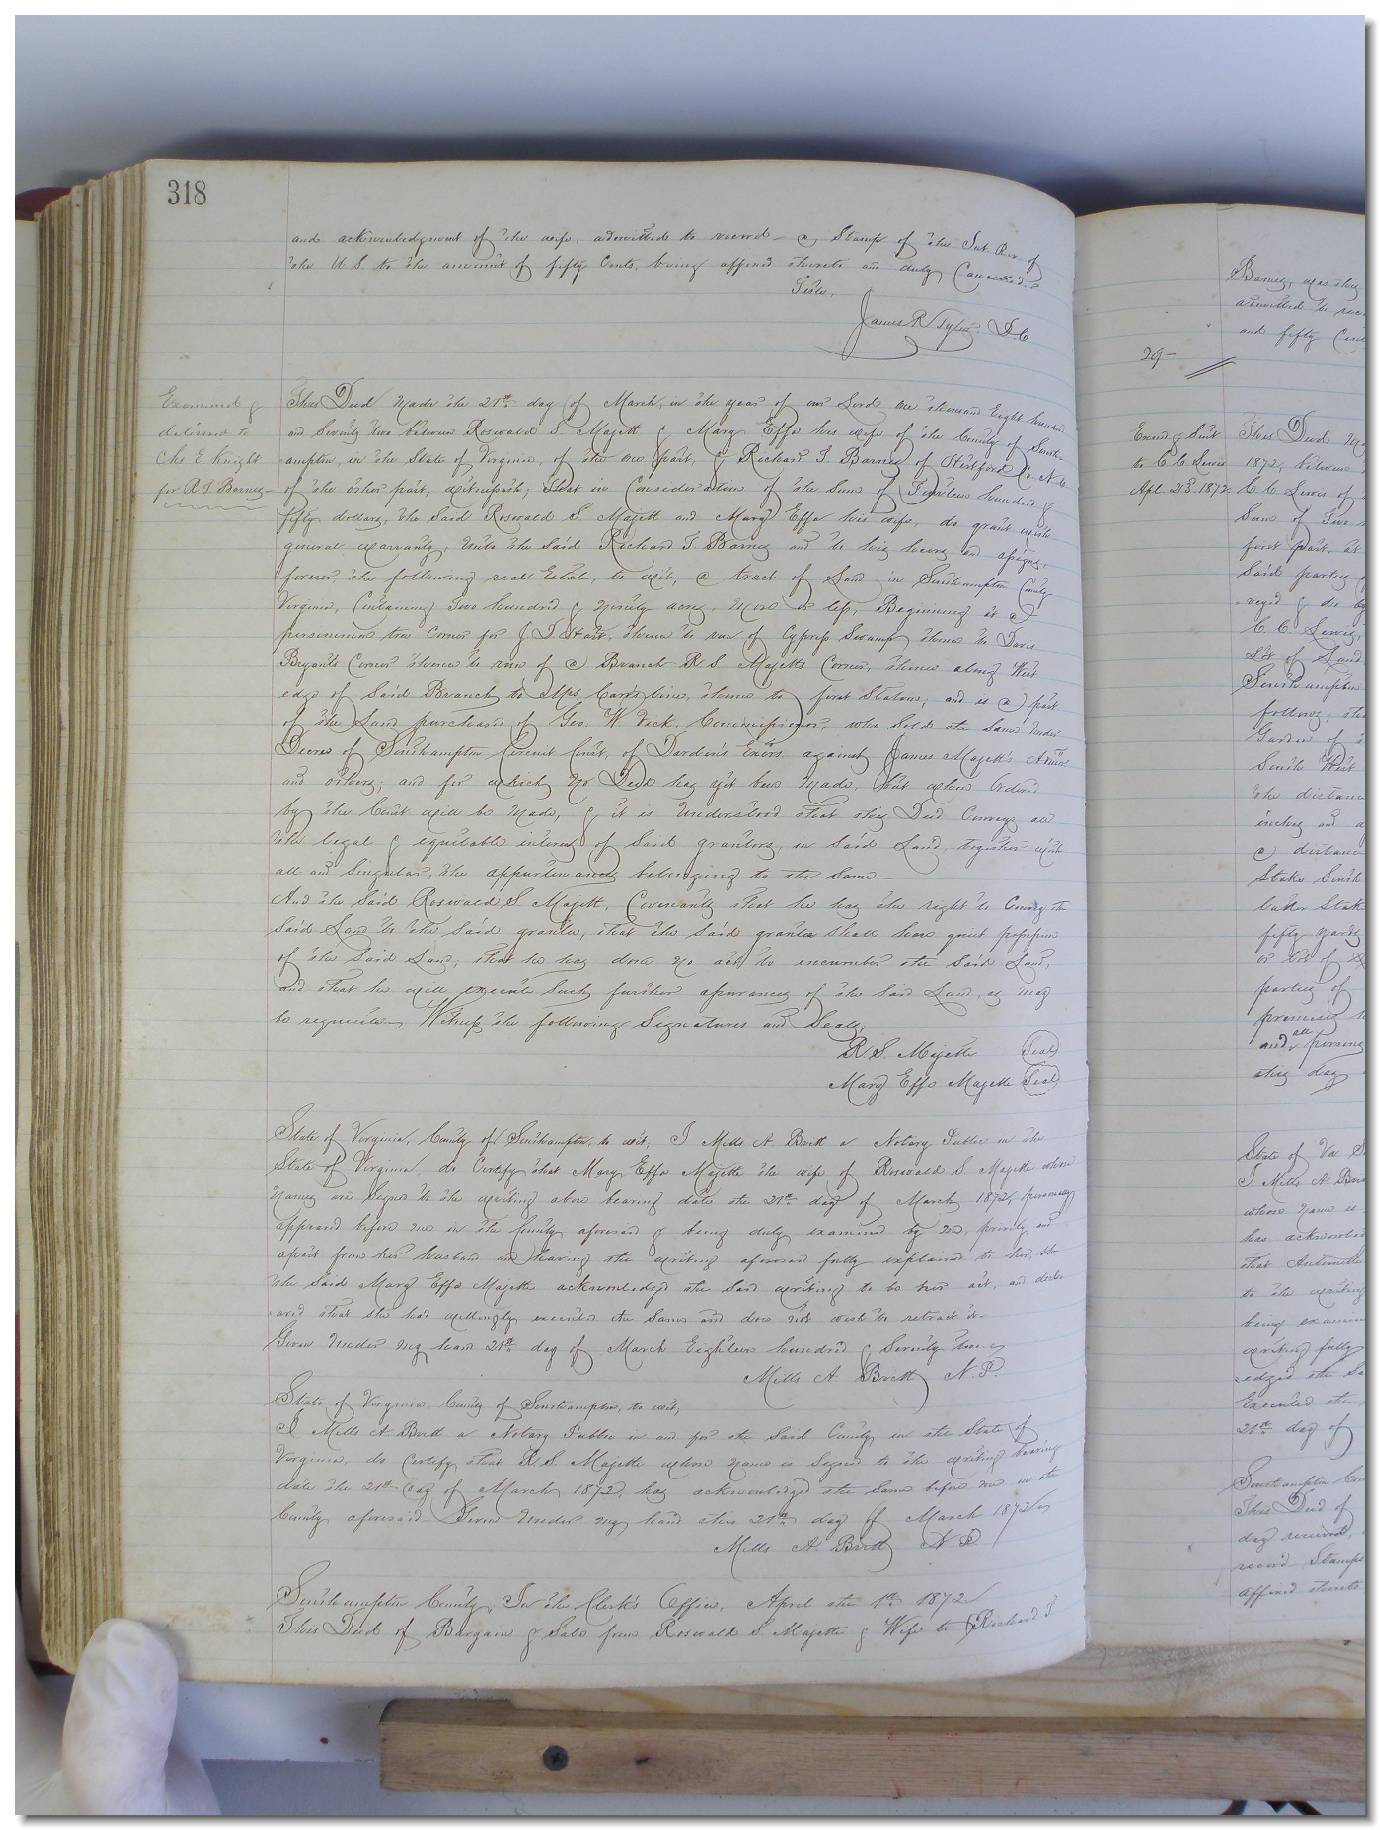 318
and acknowledgment of the wife, admitted to record – a Stamp of the Int. Rev. of
the U S to the amount of fifty Cents, being affixed thereto and duly Cancelled.
Teste,
James R Tyler. D.C
Examined &
delivered to
Chs E Knight
for R T Barnes
This Deed made the 21st day of March, in the year of our Lord one thousand Eight hundred
and Seventy two between Roswald S. Majett & Mary Effa his wife of the County of South-
ampton, in the State of Virginia, of the one part, & Richard T. Barnes of Hertford Co. N.C.
of the other part, witnesseth; that in Consideration of the Sum of Fourteen hundred &
fifty dollars, the Said Roswald S. Majett and Mary Effa his wife, do grant with
general warranty, unto the Said Richard T. Barnes and to his heirs and assigns,
forever, the following real Estate, to wit, a tract of Land in Southampton County
Virginia, Containing Two hundred & Ninety acres, more or less, Beginning at a
persimmon tree Corner for J. T. Hart, thence to run of Cypress Swamp thence to Davis
Bryant's Corner thence to run of a Branch R. S. Majetts Corner, thence along West
edge of Said Branch to Mrs. Carrs line, thence to first Station; and is a part
of the Land purchased of Geo. W. Dick, Commissioner, who Sold the Same under
Decree of Southampton Circuit Court, of Darden's Exors. against James Majett's Admor.
and others; and for which no Deed has yet been made, but when Ordered
by the Court will be made, & it is understood that this Deed Conveys all
the legal & equitable interest of Said grantors, in Said Land, together with
all and Singular, the appurtenances belonging to the Same –
And the Said Roswald S. Majett, Covenants that he has the right to Convey the
Said Land to the Said grantee, that the Said grantee shall have quiet possession
of the Said Land; that he has done no act to encumber the Said Land,
and that he will execute Such further assurances of the Said Land, as may
be requisite – Witness the following Signatures and Seals,
R. S. Majette (Seal)
Mary Effa Majette (Seal)
State of Virginia, County of Southampton, to wit, I Mills A. Britt a Notary Public in the
State of Virginia, do Certify that Mary Effa Majette the wife of Roswald S. Majette whose
Names are Signed to the writing above bearing date the 21st day of March 1872, personally
appeared before me in the County aforesaid & being duly examined by me, privily and
apart from her husband and having the writing aforesaid fully explained to her, she
the Said Mary Effa Majette acknowledged the Said writing to be her act, and decla
ared that She had willingly executed the Same and does not wish to retract it –
Given under my hand 21st day of March Eighteen hundred & Seventy two –
Mills A. Britt N. P.
State of Virginia, County of Southampton, to wit,
I Mills A Britt a Notary Public in and for the Said County, in the State of
Virginia, do Certify that R. S. Majette whose name is Signed to the writing bearing
date the 21st day of March 1872, has acknowledged the Same before me in the
County aforesaid – Given under my hand this 21st day of March 1872
Mills A. Britt N P.
Southampton County, In the Clerk's Office, April the 1st 1872
This Deed of Bargain & Sale from Roswald S. Majette & Wife to Richard T.
Barnes, was this
admitted to rec
and fifty Cen
29 –
Examd & Sent
to C C Lewis
Apl. 23. 1872
This Deed m
1872, between
C. C. Lewis of
Sum of Two
first part, at
Said parties
C. C. Lewis,
lot of Land
Southampton
follows; the
Garden of
South West
the distance
inches and a
a distance
Stake South
baker Stake
fifty yards
or lot of
parties of
promises
and all persons
this day
State of Va. S
I Mills A. Bri
whose name is
has acknowled
that Antoinette
to the writing
being examin
writing fully
edged the Sa
Executed the
21st day of
Southampton Coun
This Deed of
day received,
record – Stamps
affixed thereto